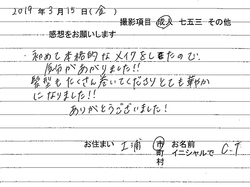 2019年3月15日(金)
撮影項目 成人 七五三 その他
感想をお願いします
初めて本格的なメイクをしたので、
気分があがりました!!
髪型もたくさん巻いてくださりとても華やか
になりました!!
ありがとうございました!
お住まい 土浦 市町村 お名前 イニシャルで C.T